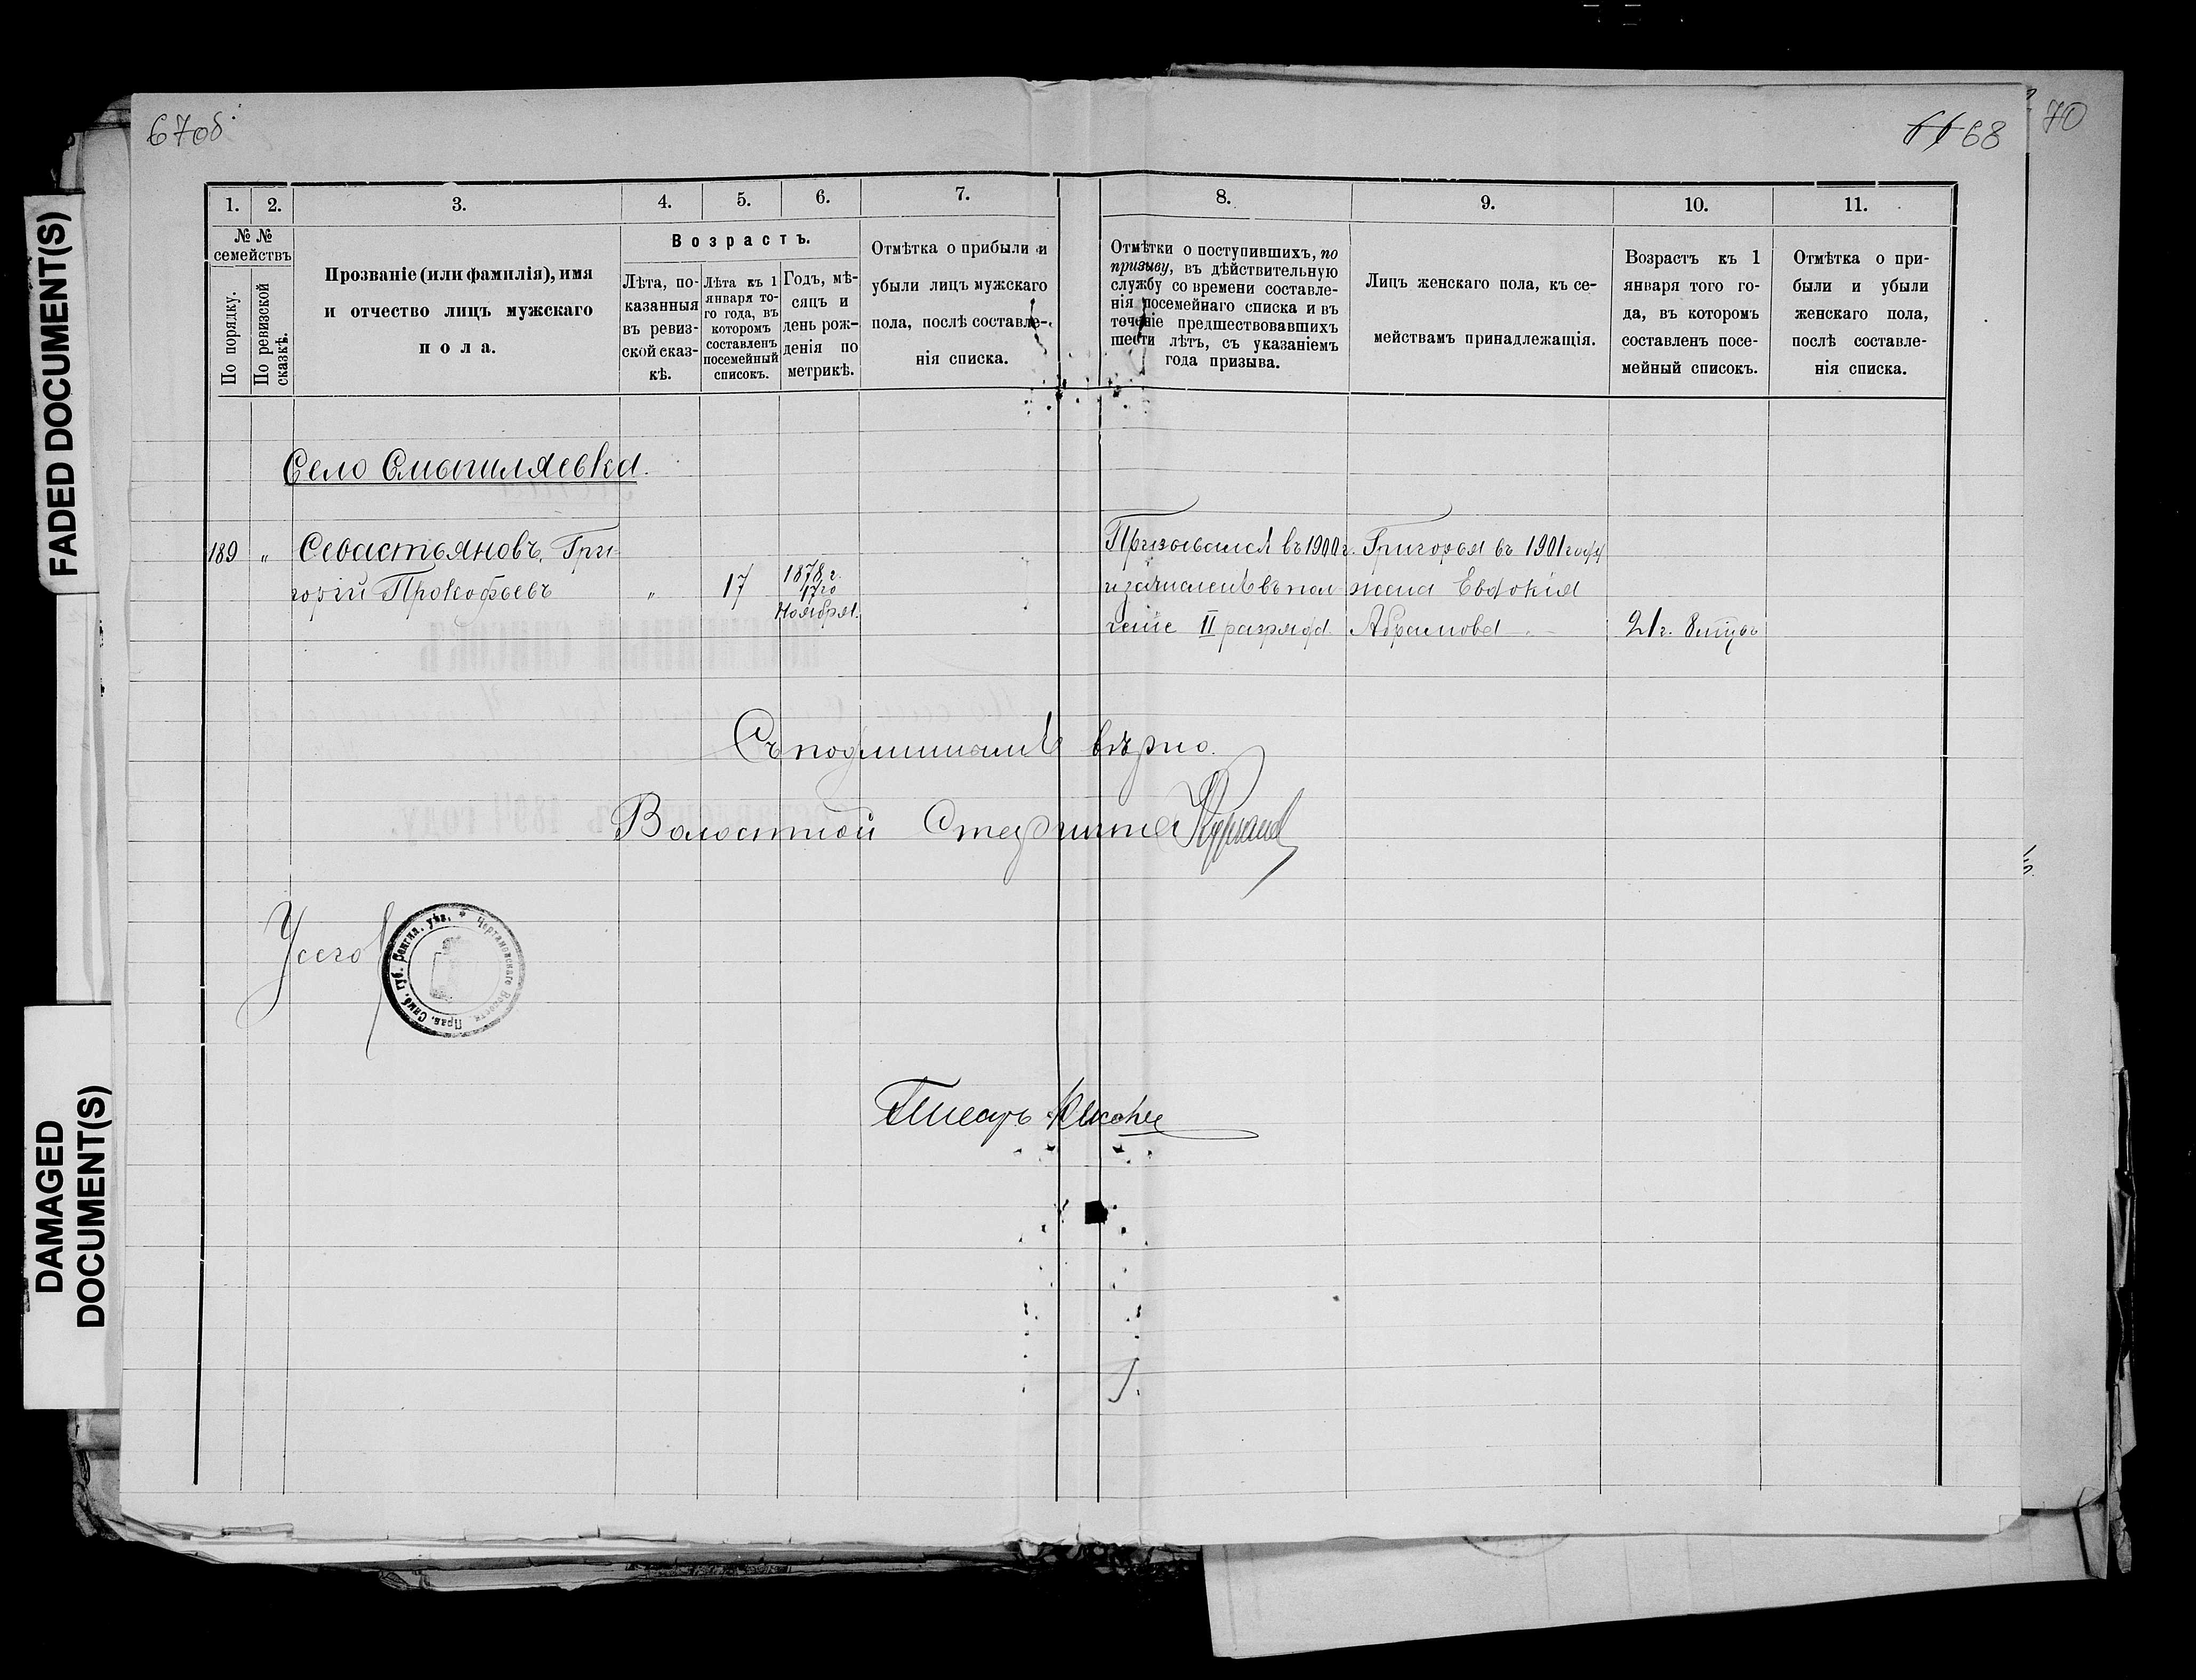 67об.
66 68
70
FADED DOCUMENT(S)
DAMAGED
DOCUMENT(S)
1.
2.
3.
4.
5.
6.
7.
8.
9.
10.
11.
№ №
семействъ
По порядку.
По ревизской
сказкѣ.
Прозваніе (или фамилія), имя
и отчество лицъ мужскаго
пола.
Возрастъ.
Лѣта, по-
казанныя
въ ревиз-
ской сказ-
кѣ.
Лѣта къ 1
января то-
го года, въ
которомъ
составленъ
посемейный
списокъ.
Годъ, мѣ-
сяцъ и
день рож-
денія по
метрикѣ.
Отмѣтка о прибыли и
убыли лицъ мужскаго
пола, послѣ составле-
нія списка.
Отмѣтки о поступившихъ, по
призыву, въ дѣйствительную
службу со времени составле-
нія посемейнаго списка и въ
теченіе предшествовавшихъ
шести лѣтъ, съ указаніемъ
года призыва.
Лицъ женскаго пола, къ се-
мействамъ принадлежащія.
Возрастъ къ 1
января того го-
да, въ которомъ
составленъ посе-
мейный списокъ.
Отмѣтка о при-
были и убыли
женскаго пола,
послѣ составле-
нія списка.
Село
189 " Севастьяновъ, Гри-
горій Прокофьевъ " 17
1878 г.
17го
Ноября.
Призывался въ 1900 г.
и зачисленъ въ опол-
ченіе II разряда
Григорья въ 1901 году
жена Евдокія
Абрамова 21 г. 8 мцъ
Съ подлиннымъ вѣрно.
Волостной Старшина
Чертановскаго Волостн. Прав. Симб. губ. Сенгил. уѣз.
Писарь